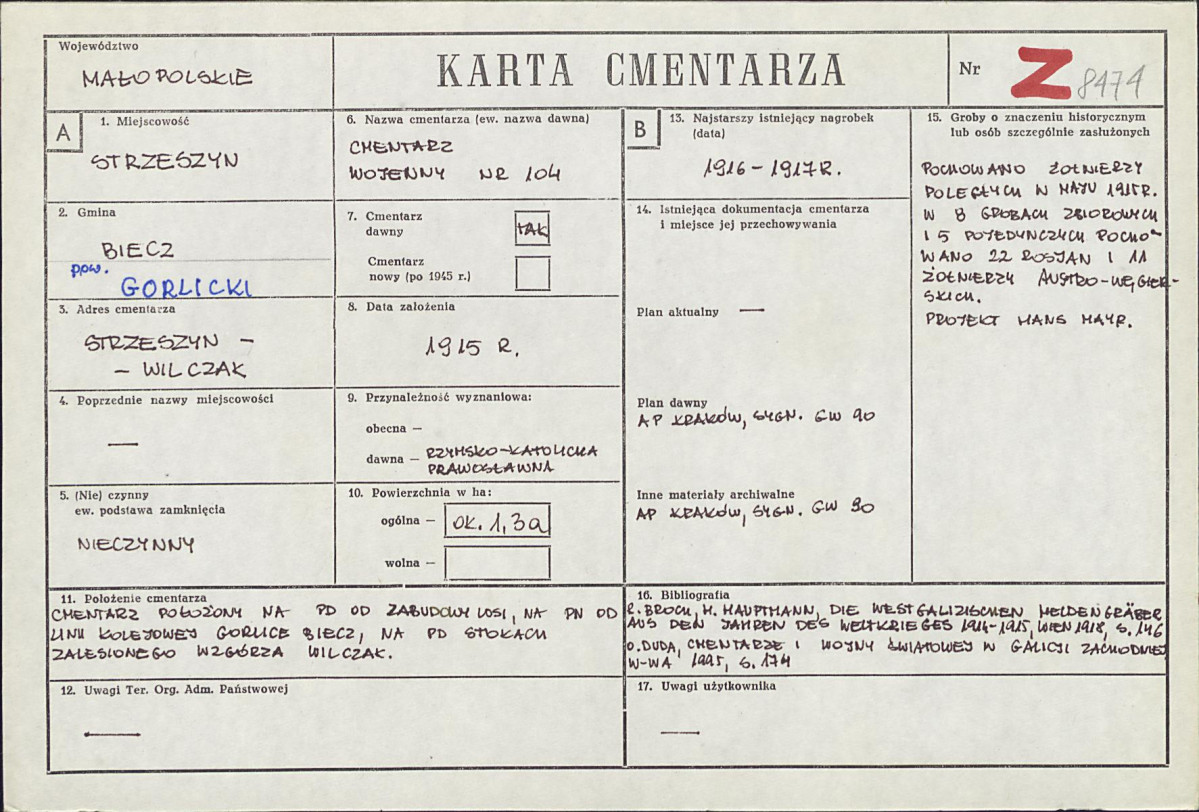 Województwo
MAŁOPOLSKIE
KARTA CMENTARZA
Nr Z 8474
A
1. Miejscowość
STRZESZYN
2. Gmina
BIECZ
pow.
GORLICKI
3. Adres cmentarza
STRZESZYN –
– WILCZAK
4. Poprzednie nazwy miejscowości
—
5. (Nie) czynny
ew. podstawa zamknięcia
NIECZYNNY
6. Nazwa cmentarza (ew. nazwa dawna)
CMENTARZ
WOJENNY NR 104
7. Cmentarz
dawny
TAK
Cmentarz
nowy (po 1945 r.)
8. Data założenia
1915 R.
9. Przynależność wyznaniowa:
obecna –
dawna – RZYMSKO-KATOLICKA
PRAWOSŁAWNA
10. Powierzchnia w ha:
ogólna – OK. 1,3a
wolna –
B
13. Najstarszy istniejący nagrobek
(data)
1916 – 1917 R.
14. Istniejąca dokumentacja cmentarza
i miejsce jej przechowywania
Plan aktualny —
Plan dawny
AP KRAKÓW, SYGN. GW 90
Inne materiały archiwalne
AP KRAKÓW, SYGN. GW 90
15. Groby o znaczeniu historycznym
lub osób szczególnie zasłużonych
POCHOWANO ŻOŁNIERZY
POLEGŁYCH W MAJU 1915R.
W 8 GROBACH ZBIOROWYCH
I 5 POJEDYNCZYCH POCHO-
WANO 22 ROSJAN I 11
ŻOŁNIERZY AUSTRO-WĘGIER-
SKICH.
PROJEKT HANS MAYR.
11. Położenie cmentarza
CMENTARZ POŁOŻONY NA PD OD ZABUDOWY WSI, NA PN OD
LINII KOLEJOWEJ GORLICE BIECZ, NA PD STOKACH
ZALESIONEGO WZGÓRZA WILCZAK.
16. Bibliografia
R. BROCH, H. HAUPTMANN, DIE WESTGALIZISCHEN HELDENGRÄBER
AUS DEN JAHREN DES WELTKRIEGES 1914-1915, WIEN 1918, S. 146
O. DUDA, CMENTARZE I WOJNY ŚWIATOWEJ W GALICJI ZACHODNIEJ
W-WA 1995, S. 174
12. Uwagi Ter. Org. Adm. Państwowej
—
17. Uwagi użytkownika
—